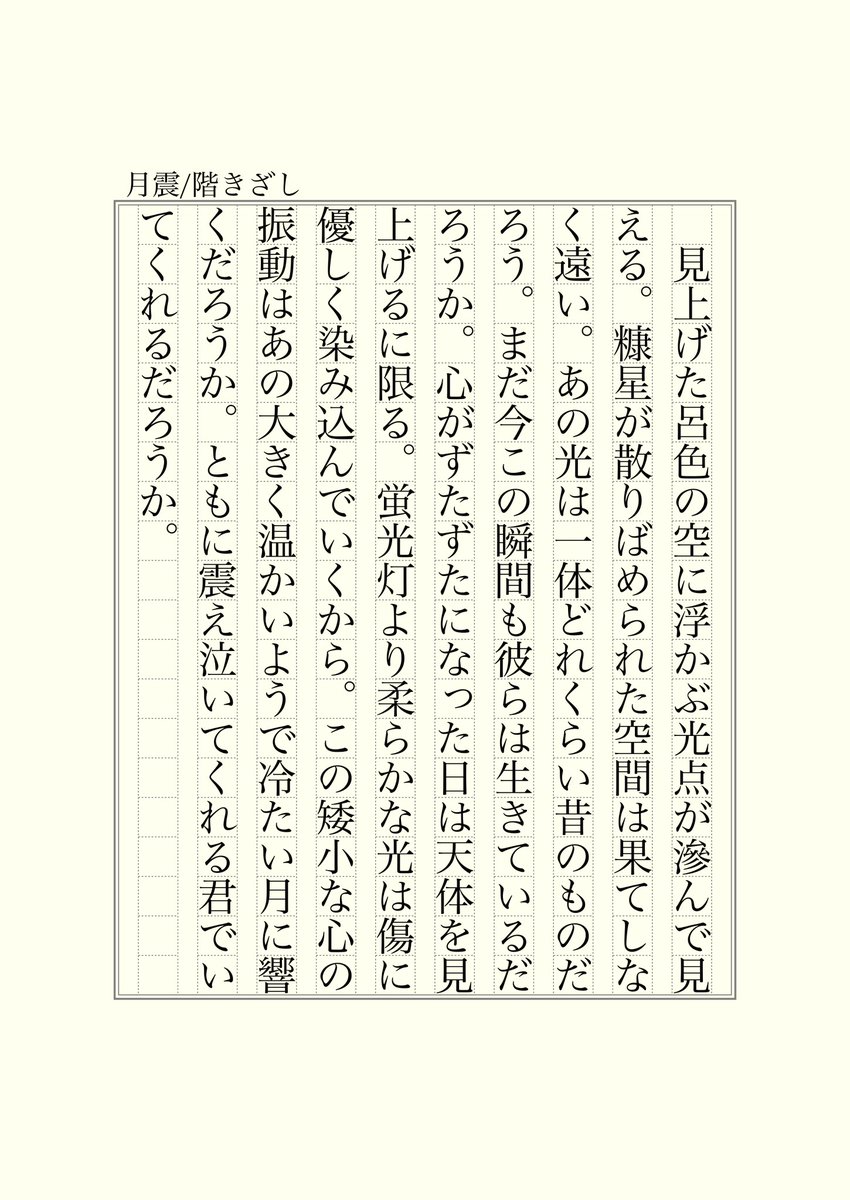 月震/階きざし
　見上げた呂色の空に浮かぶ光点が滲んで見
える。糠星が散りばめられた空間は果てしな
く遠い。あの光は一体どれくらい昔のものだ
ろう。まだ今この瞬間も彼らは生きているだ
ろうか。心がずたずたになった日は天体を見
上げるに限る。蛍光灯より柔らかな光は傷に
優しく染み込んでいくから。この矮小な心の
振動はあの大きく温かいようで冷たい月に響
くだろうか。ともに震え泣いてくれる君でい
てくれるだろうか。